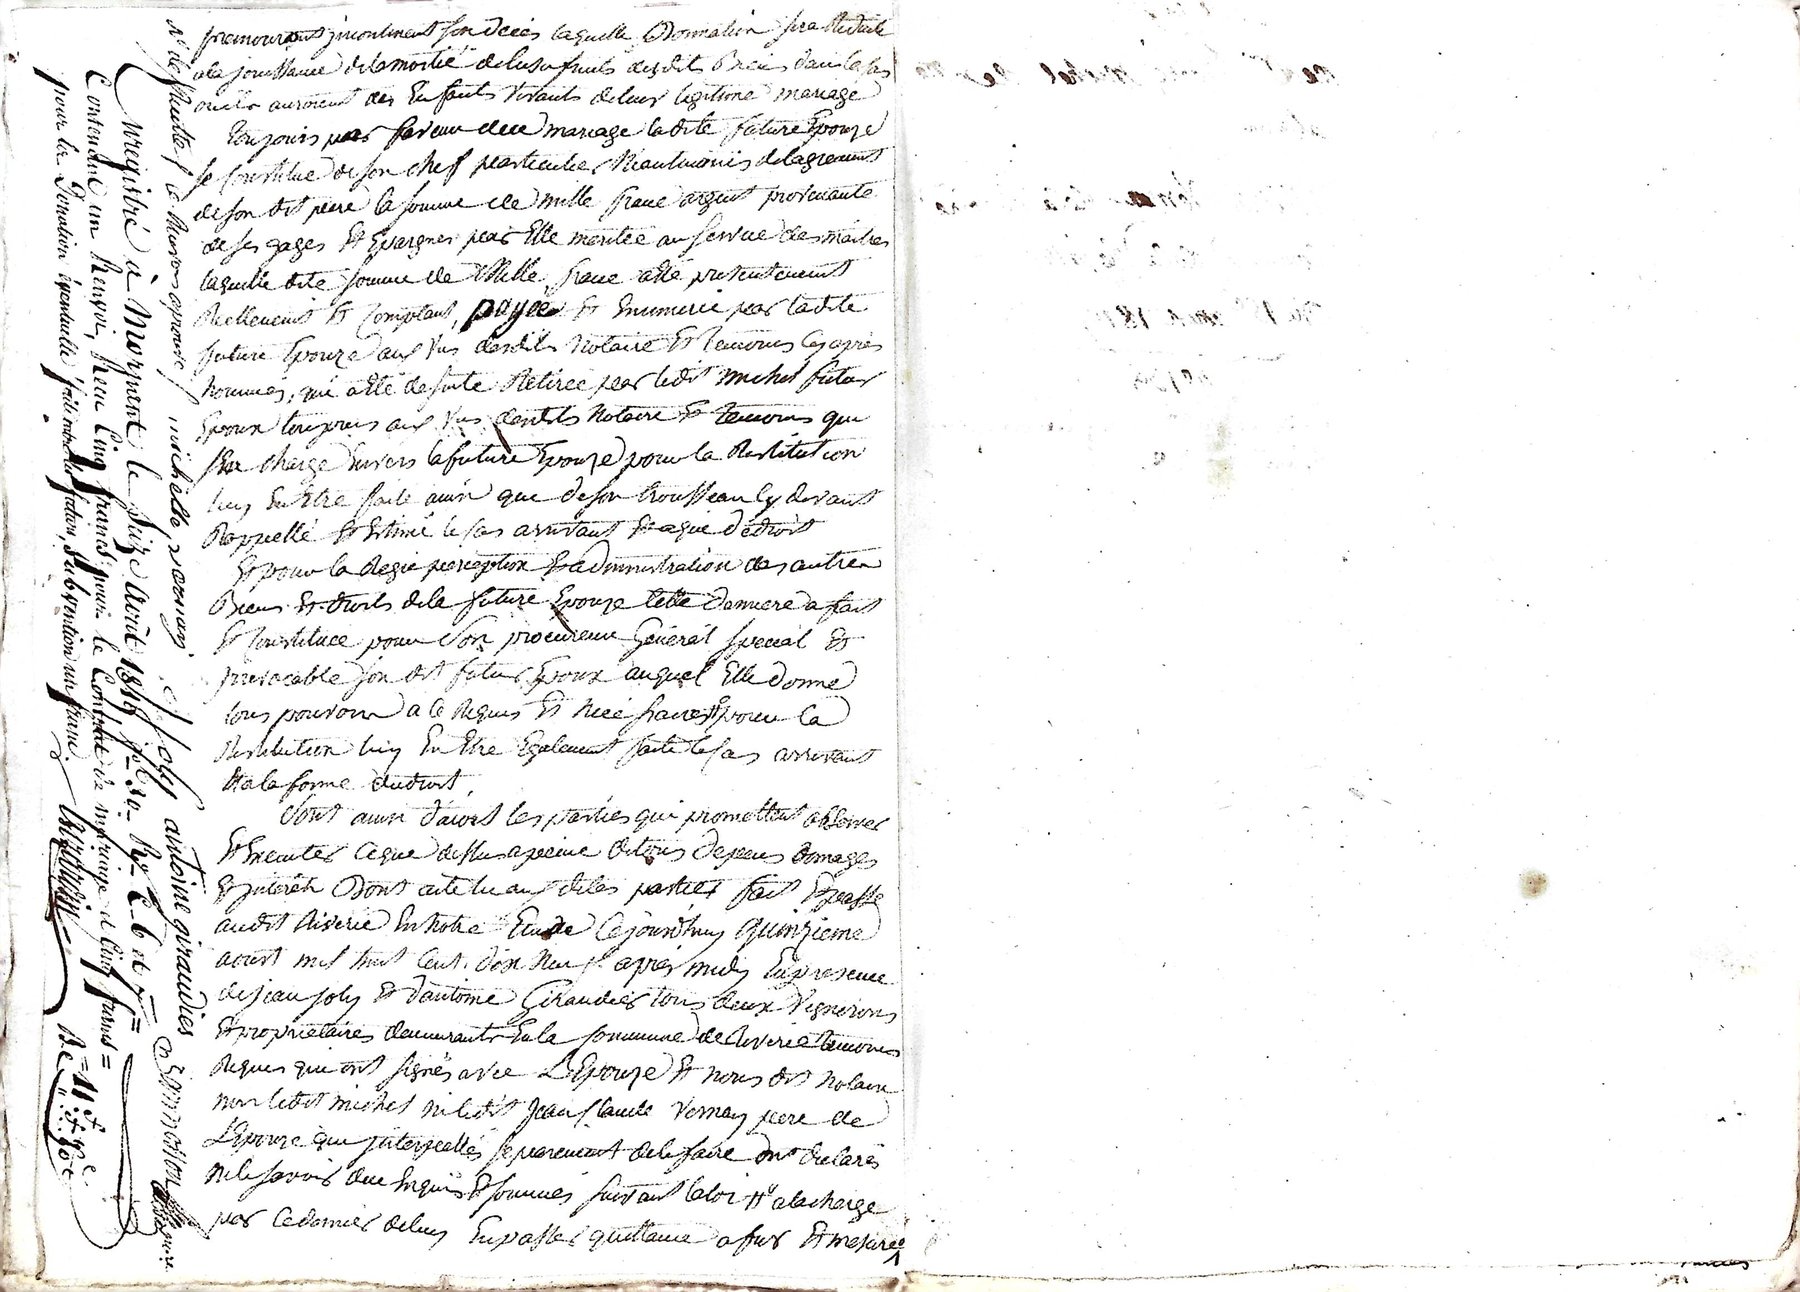 premourant incontinent son deces laquelle Donnation sera Reduite
ala jouissance delamoitié delusufruits desdits Biens dans le cas
ou ils auroient des Enfants vivants deleur legitime mariage
Toujours par faveur dece mariage ladite future Epouze
se Constitue de son chef particulier Neantmoins delagrement
de son dit pere la somme de mille franc argent provenante
de ses gages Et Epargnes par Elle meritée au service des maitres
laquelle dite somme de Mille franc aété presentement
Reellement Et Comptant, payée Et Enumerée par ladite
future Epouze aux vus desdits Notaire Et Temoins cy après
nommés, qui aété de suite Retirée par ledit michel futur
Epoux toujours aux vus desdits Notaire Et temoins qui
sen charge Envers la future Epouze pour la Restitution
luy En Etre faite ainsi que deson trousseau cy devant
Rappellé Et Estimé le cas arrivant Et aqui dedroit
Et pour la Regie perception Et administration des autres
Biens Et droits dela future Epouze cette derniere a fait
Et Constitue pour Son procureur General special Et
irrevocable son dit futur Epoux auquel Elle donne
tous pouvoirs a ce Requis Et Necessaires pour la
Restitution luy En Etre Egalement faite le cas arrivant
Et ala forme dudroit.
Sont ainsi d'accord les parties qui promettent observer
Et Executer Ceque dessus apeine detous depens Domages
Et interêts Dont acte lu aux dites parties fait Et passé
audit Riverie En notre Etude Cejourdhuy quinzieme
aoust mil huit Cent dix Neuf après midy En presence
de jean joly Et d'antoine Giraudier tous deux Vignerons
Et proprietaires demeurants En la Commune de Riverie temoins
Requis qui ont signés avec L'Epouze Et nous dit Notaire
non ledit michel ni ledit jean Claude Vernay pere de
L'Epouze qui interpellés separement dele faire ont declarés
nele savoir due Enquis Et sommés suivant la loi # ala charge
par Cedernier deluy En passer quittance a fur Et mesure
de suitte
joly antoine giraudier
Enregistré à Mornant le seize Août 1819
Contenant un Renvoi, Reçu Cinq francs pour le Contrat de mariage et Cinq francs=
pour la Donation éventuelle faite entre les futurs, Subvention un franc